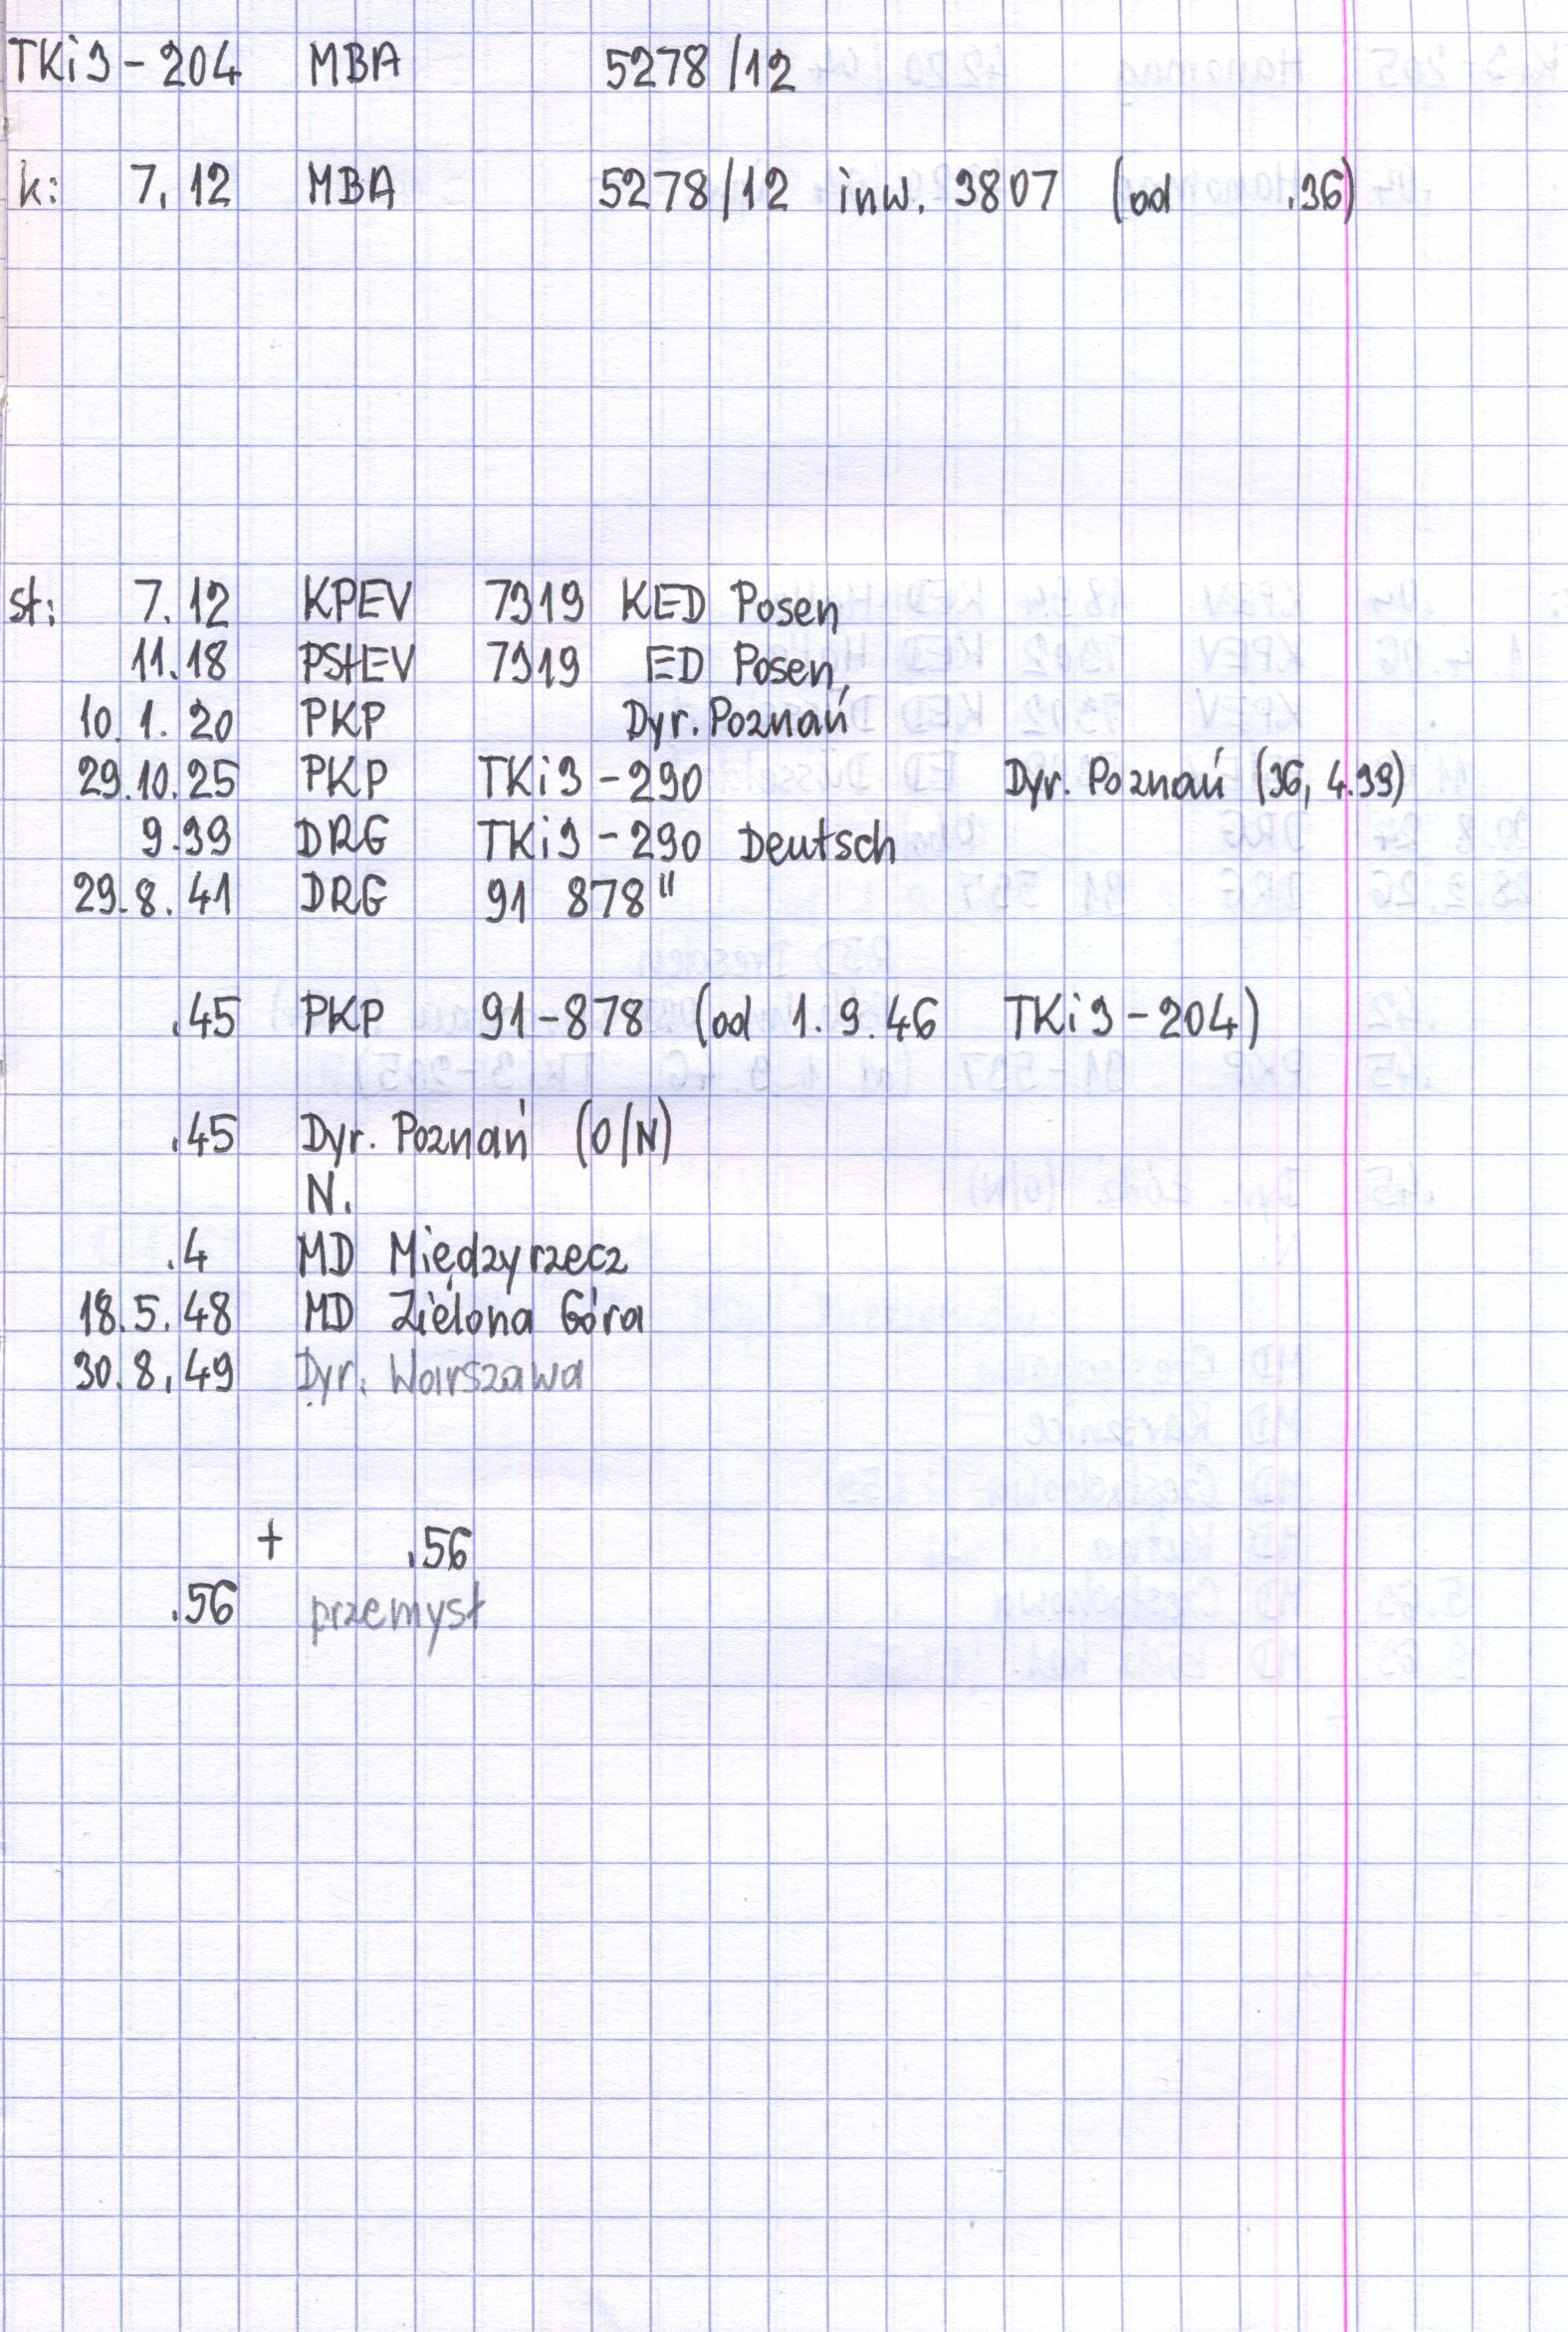 TKi3-204 MBA 5278/12
k: 7.12 MBA 5278/12 inw. 3807 (od .36)
st: 7.12 KPEV 7319 KED Posen
11.18 PStEV 7319 ED Posen,
10.1.20 PKP Dyr. Poznań
29.10.25 PKP TKi3-290 Dyr. Poznań (36, 4.39)
9.39 DRG TKi3-290 Deutsch
29.8.41 DRG 91 878"
.45 PKP 91-878 (od 1.9.46 TKi3-204)
.45 Dyr. Poznań (O/N)
N.
.4 MD Międzyrzecz
18.5.48 MD Zielona Góra
30.8.49 Dyr. Warszawa
+ .56
.56 przemysł